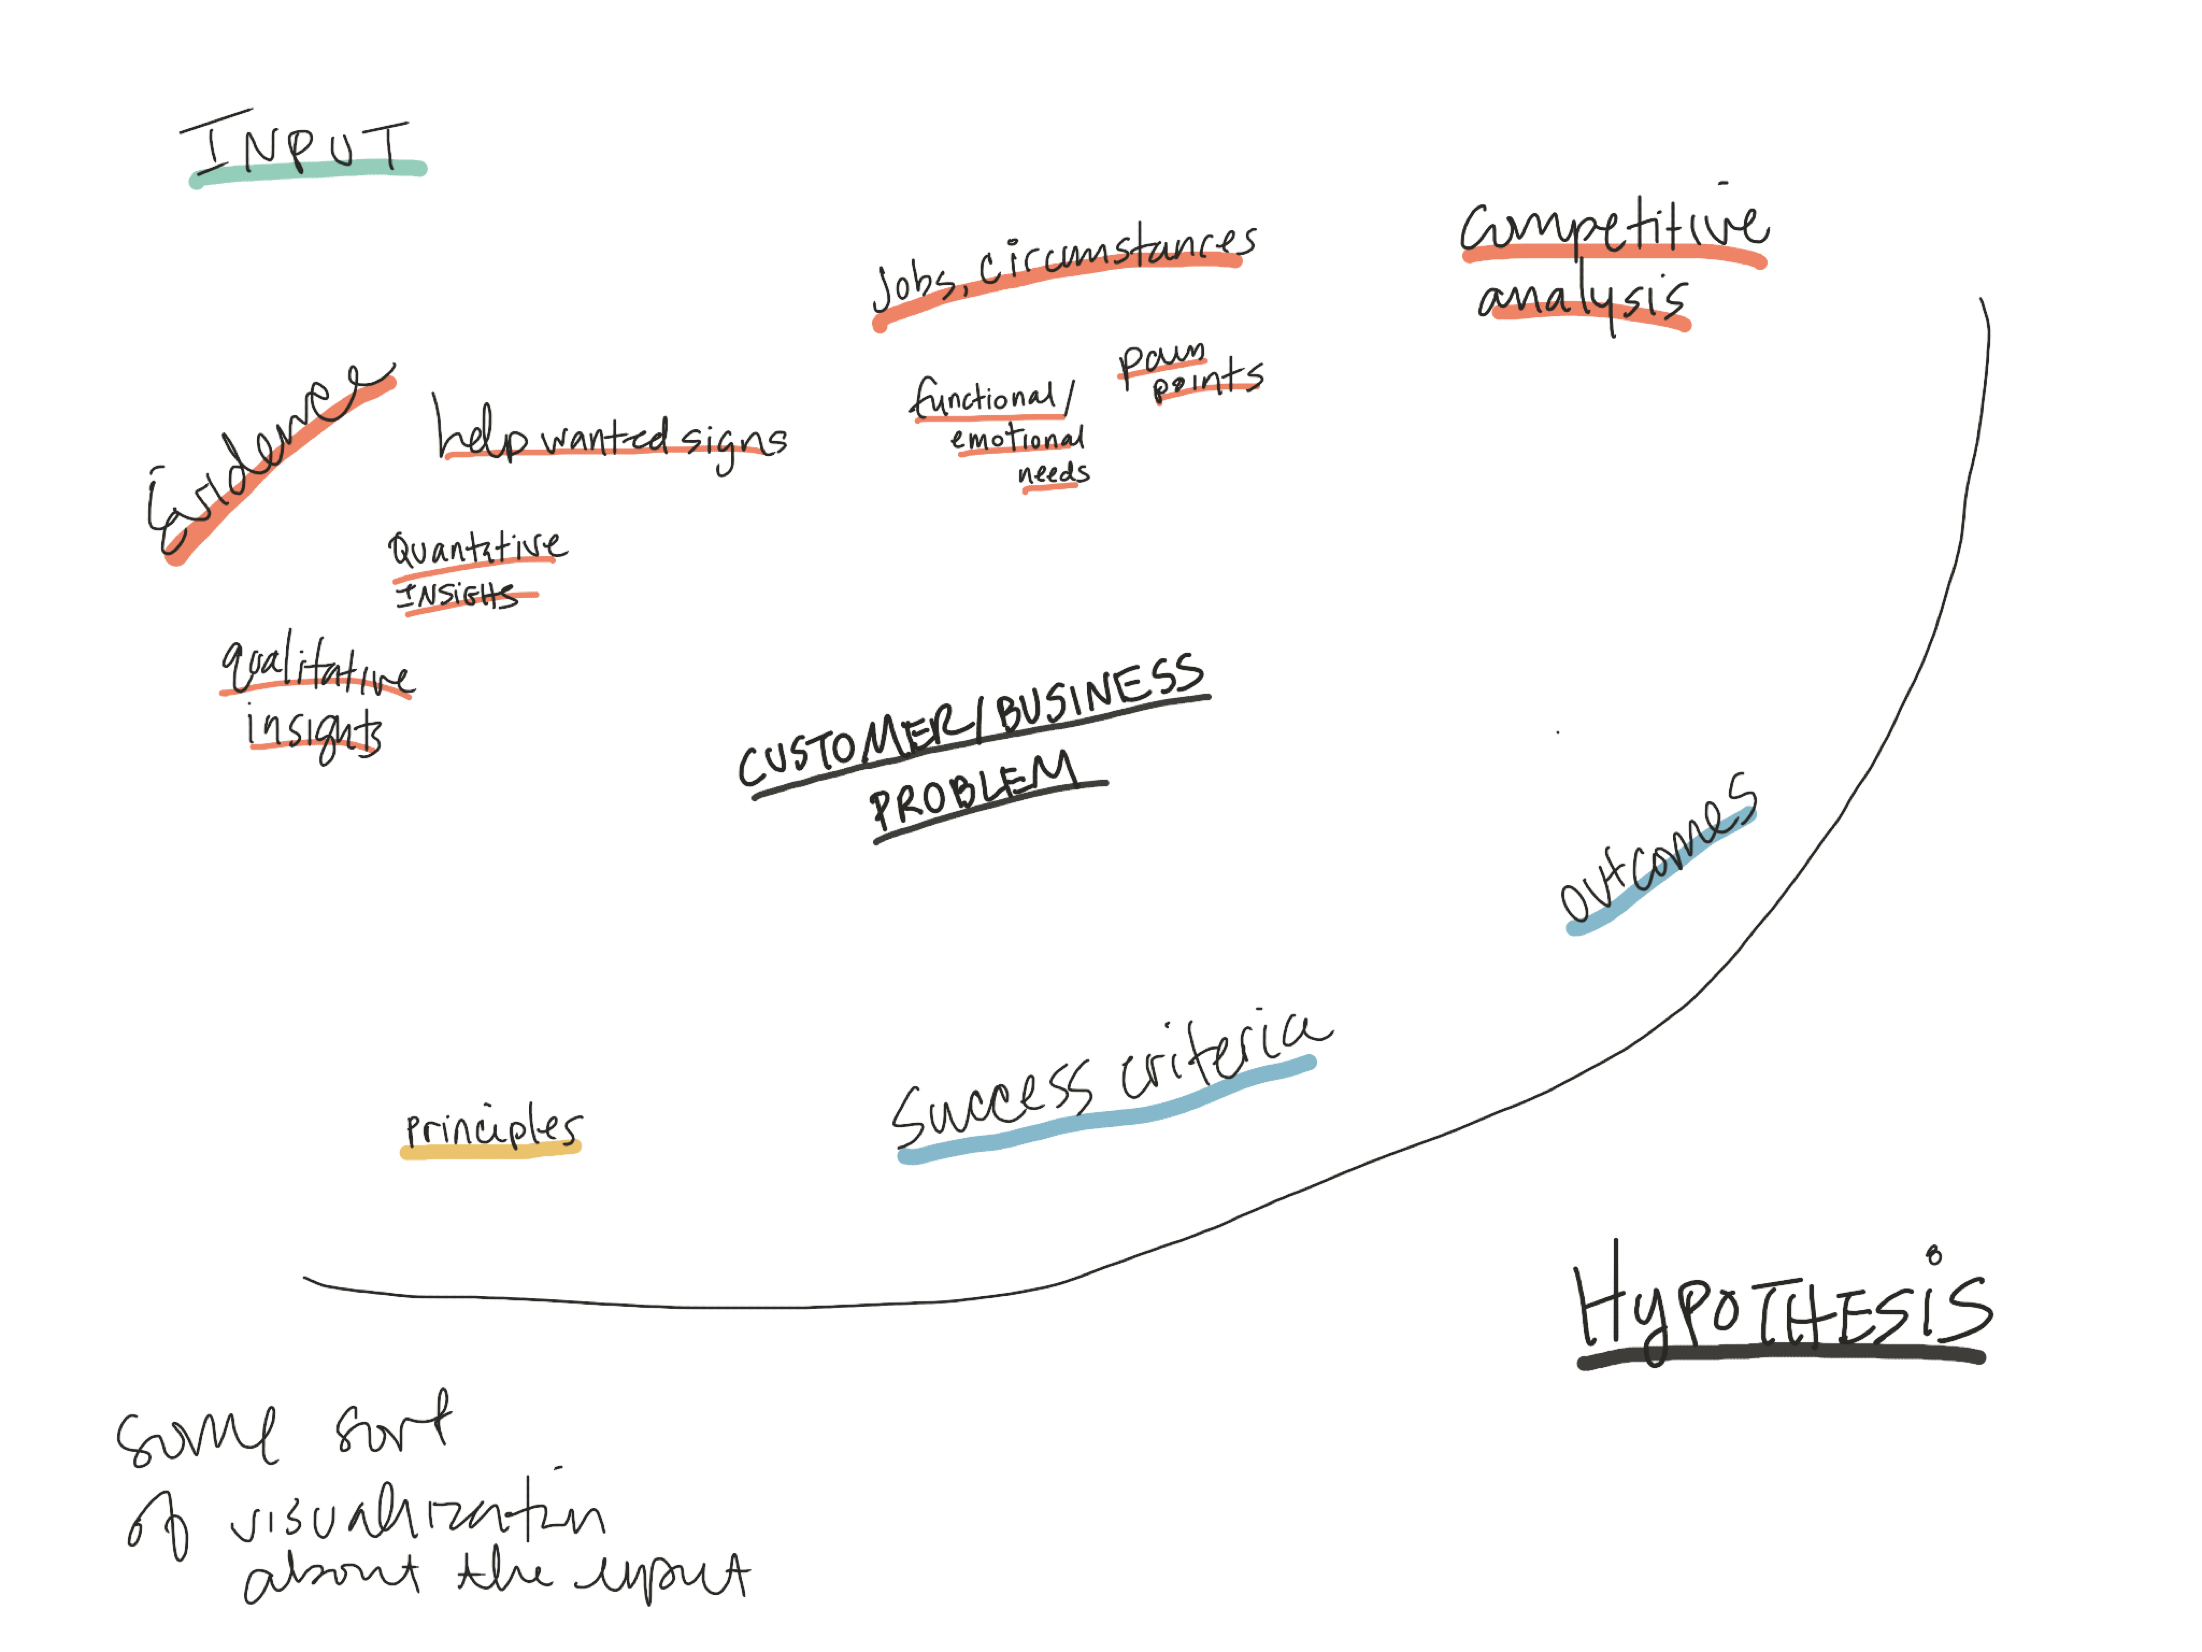 INPUT
Competitive
analysis
Jobs, circumstances
pain
points
functional/
emotional
needs
Evidence
help wanted signs
Quantative
INSIGHTS
qualitative
insights
CUSTOMER/BUSINESS
PROBLEM
outcomes
Success criteria
principles
HYPOTHESIS
some sort
of visualization
about the input